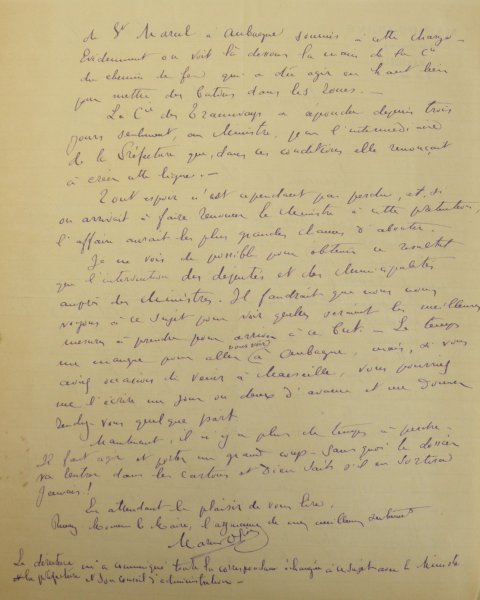 de St Marcel à Aubagne soumis à cette charge —
Evidemment on voit là dessous la main de la Cie
du chemin de fer qui a dû agir en haut lieu
pour mettre des bâtons dans les roues. —
La Cie des Tramways a répondu depuis trois
jours seulement, au Ministre, par l'intermédiaire
de la Préfecture que, dans ces conditions elle renonçait
à créer cette ligne. —
Tout espoir n'est cependant pas perdu, et, si
on arrivait à faire renoncer le Ministre à cette prétention,
l'affaire aurait les plus grandes chances d'aboutir.
Je ne vois de possible pour obtenir ce résultat
que l'intervention des députés et des Municipalités
auprès des Ministres. Il faudrait que nous nous
voyons à ce sujet pour voir quelles seraient les meilleures
mesures à prendre pour arriver à ce but. — Le temps
me manque pour aller vous voir à Aubagne, mais, si vous
aviez occasion de venir à Marseille, vous pourriez
me l'écrire un jour ou deux d'avance et me donner
rendez-vous quelque part.
Maintenant, il n'y a plus de temps à perdre.
Il faut agir et porter un grand coup — Sans quoi le dossier
va rentrer dans les cartons et Dieu sait s'il en sortira
jamais!
En attendant le plaisir de vous lire,
Recevez Monsieur le Maire, l'assurance de mes meilleurs sentiments
Le directeur m'a communiqué toute la correspondance échangée à ce sujet avec le Ministre
et la préfecture et son conseil d'administration —